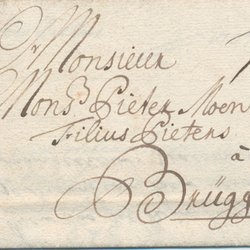 Monsieur
Mons.r Pieter Moen
Filius Pieters
à
Brügg